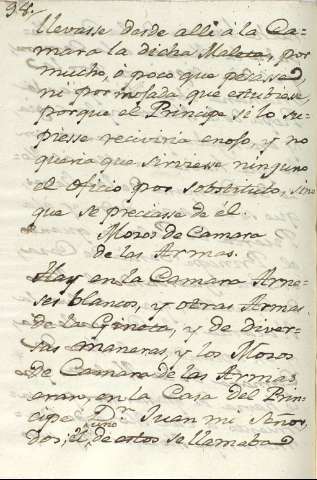 98.
llevasse desde alli á la Ca-
mara la dicha Maleta, por
mucho, ò poco que pesasse
ni por mojada que estubiesse,
porque el Principe si lo su-
piesse reciviria enojo, y no
queria que sirviesse ninguno
el Oficio por sobstituto, sino
que se preciasse de él.
Mozos de Camara
de las Armas.
Hay en la Camara Arne-
ses blancos, y otras Armas
de la Gineta, y de diver-
sas maneras, y los Mozos
de Camara de las Armas
eran, en la Casa del Prin-
cipe Dn. Juan mi Señor
dos; el uno de estos se llamaba